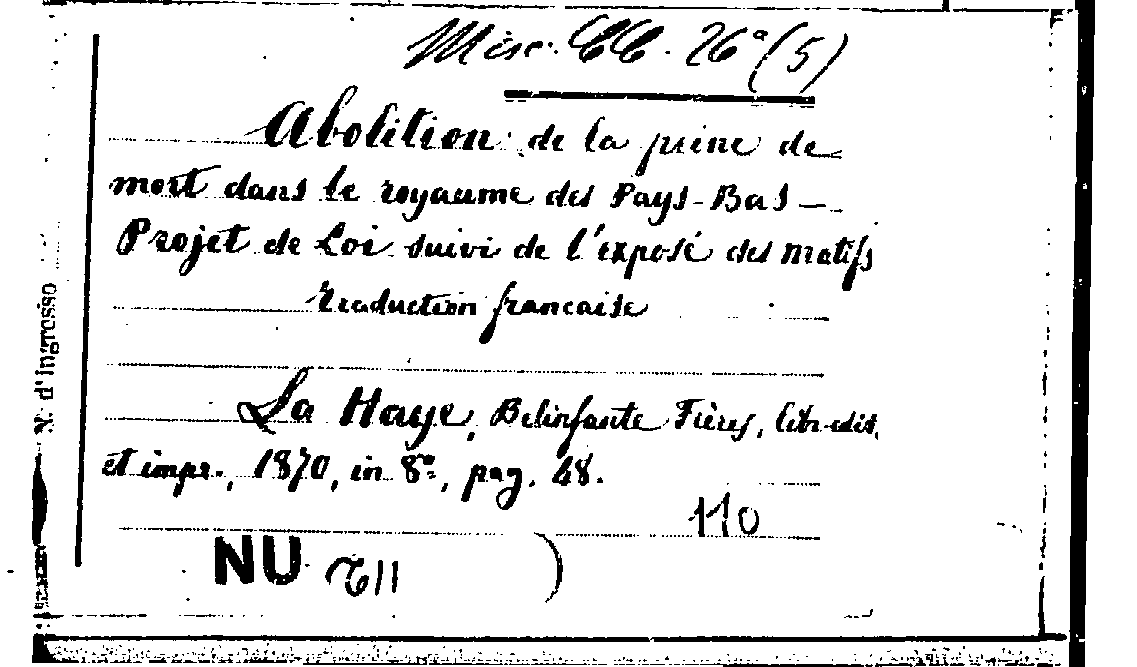 Misc. CC. 26ª (5)
Abolition de la peine de
mort dans le royaume des Pays-Bas —
Projet de Loi suivi de l'exposé des motifs
traduction francaise
La Haye, Belinfante Frères, libr-edit.
et impr., 1870, in 8º, pag. 48.
110
NU
N. d'Ingresso